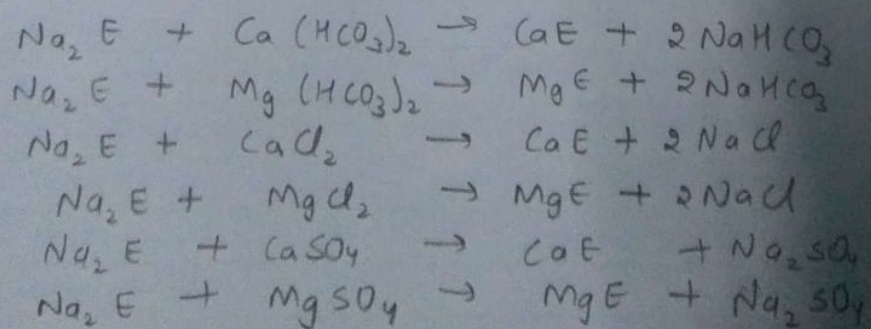 Na₂ E + Ca (HCO₃)₂ → CaE + 2 NaHCO₃
Na₂ E + Mg (HCO₃)₂ → MgE + 2NaHCO₃
Na₂ E + CaCl₂ → CaE + 2 NaCl
Na₂ E + MgCl₂ → MgE + 2NaCl
Na₂ E + CaSO₄ → CaE + Na₂SO₄
Na₂ E + MgSO₄ → MgE + Na₂SO₄